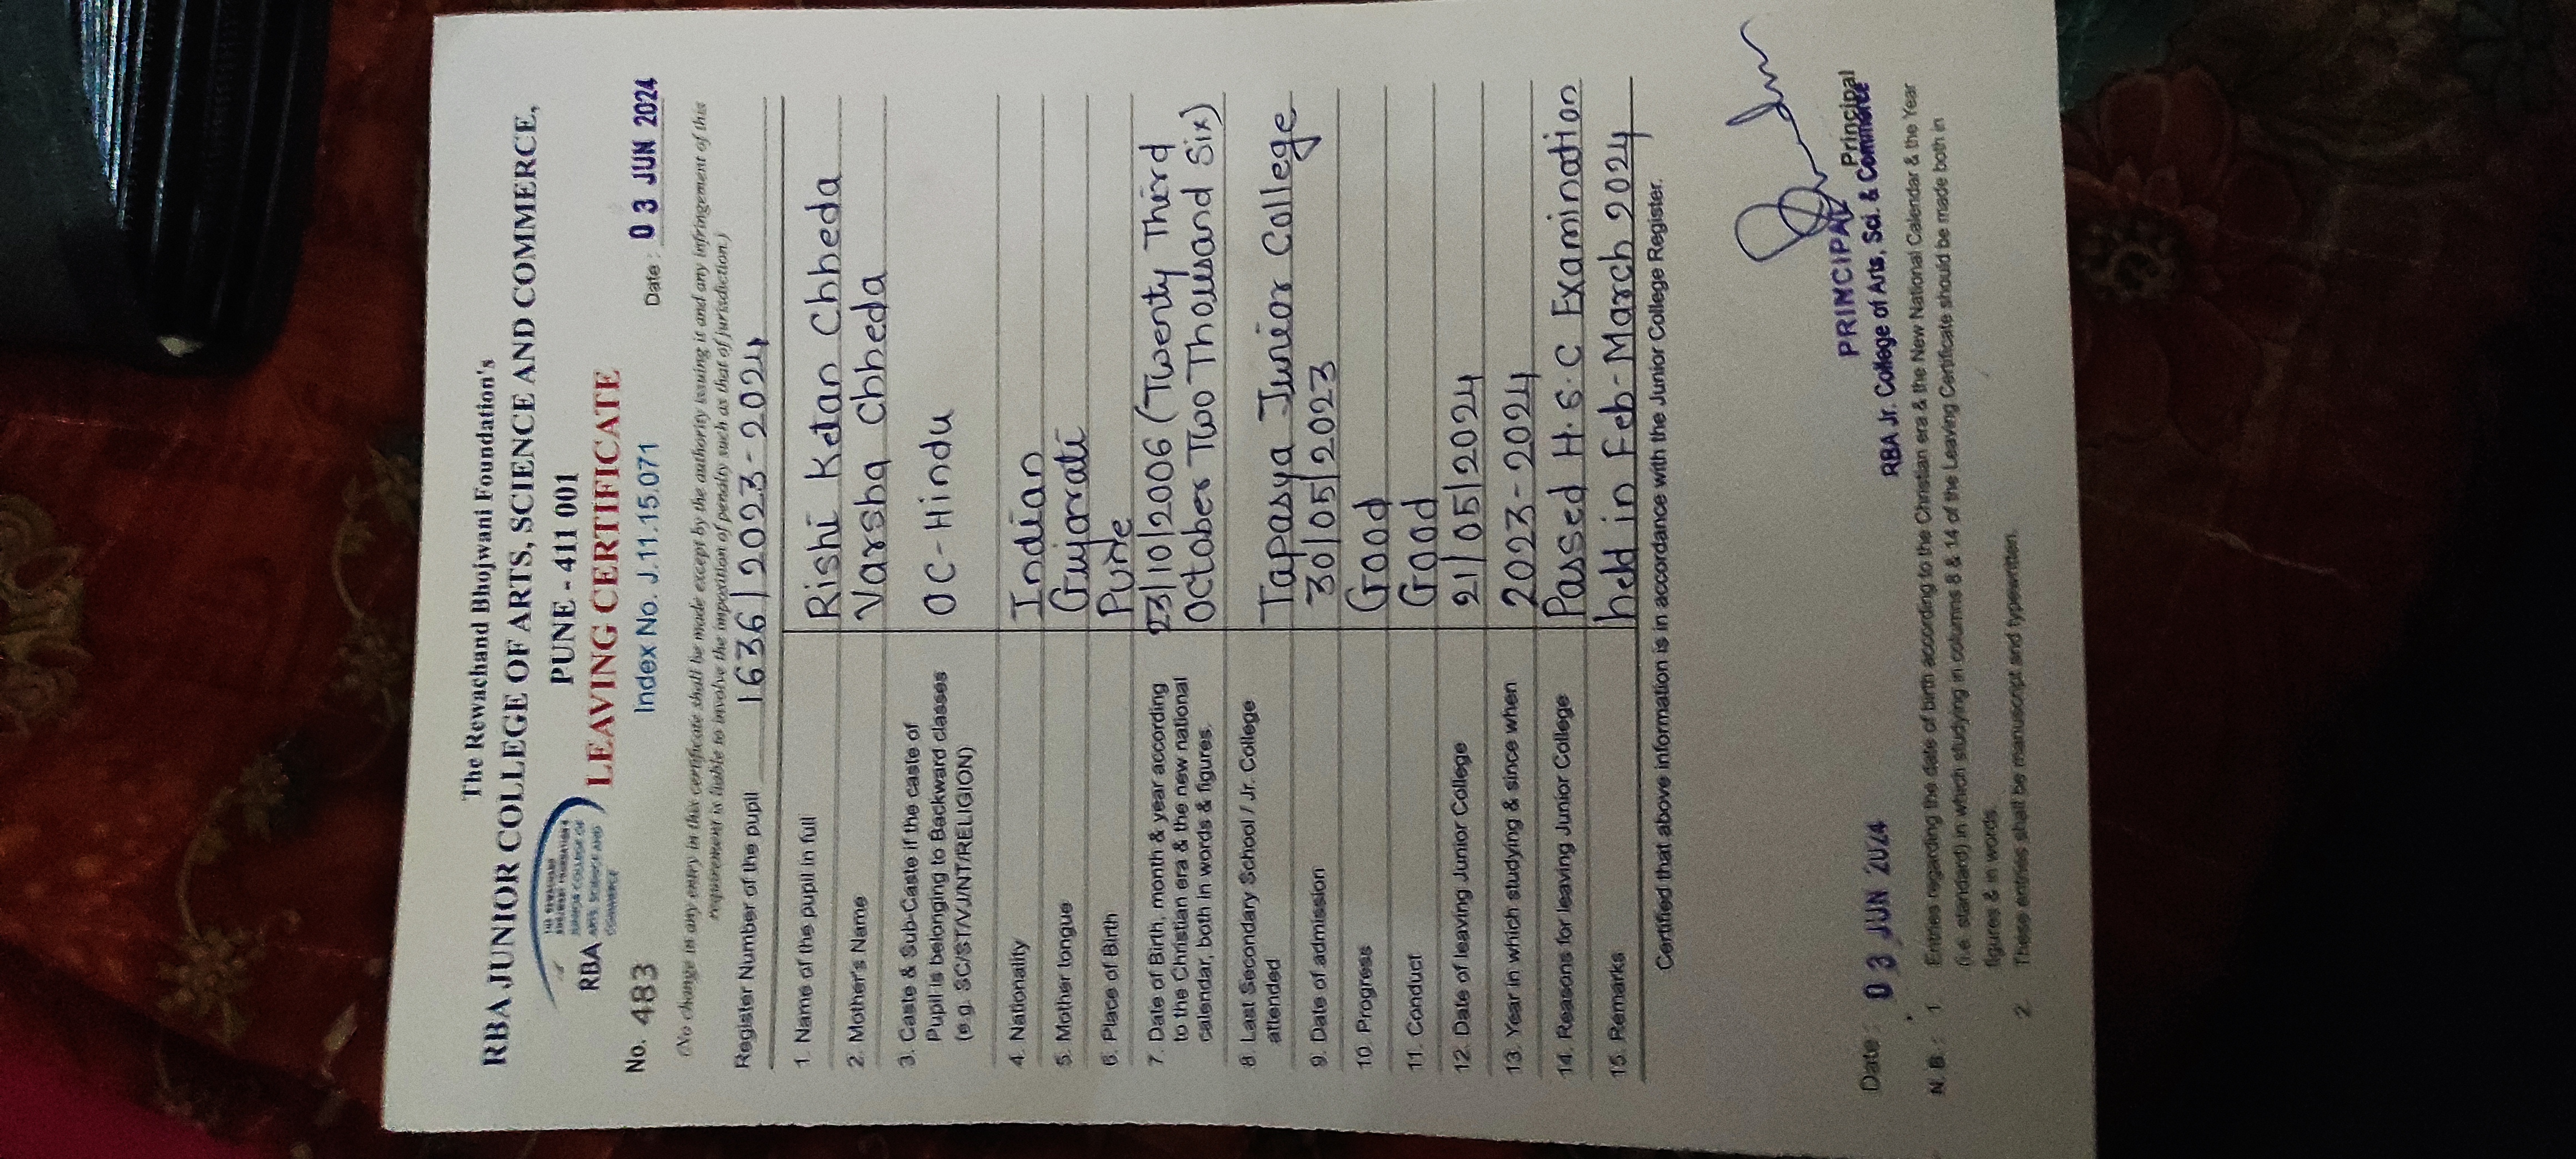 The Rewachand Bhojwani Foundation's
RBA JUNIOR COLLEGE OF ARTS, SCIENCE AND COMMERCE,
PUNE - 411 001
RBA
JUNIOR COLLEGE OF
ARTS, SCIENCE AND
COMMERCE
LEAVING CERTIFICATE
No. 483
Index No. J.11.15.071
Date : 03 JUN 2024
(No change in any entry in this certificate shall be made except by the authority issuing it and any infringement of this
requirement is liable to involve the imposition of penalty such as that of jurisdiction.)
Register Number of the pupil 1636/2023-2024
1. Name of the pupil in full Rishi Ketan Chheda
2. Mother's Name Varsha Chheda
3. Caste & Sub-Caste if the caste of
Pupil is belonging to Backward classes OC-Hindu
(e.g. SC/ST/VJ/NT/RELIGION)
4. Nationality Indian
5. Mother tongue Gujarati
6. Place of Birth Pune
7. Date of Birth, month & year according 23/10/2006 (Twenty Third
to the Christian era & the new national October Two Thousand Six)
calendar, both in words & figures.
8. Last Secondary School / Jr. College Tapasya Junior College
attended
9. Date of admission 30/05/2023
10. Progress Good
11. Conduct Good
12. Date of leaving Junior College 21/05/2024
13. Year in which studying & since when 2023-2024
14. Reasons for leaving Junior College Passed H.S.C Examination
15. Remarks held in Feb-March 2024
Certified that above information is in accordance with the Junior College Register.
Principal
PRINCIPAL
Date : 03 JUN 2024
RBA Jr. College of Arts, Sci. & Commerce
N. B. : 1. Entries regarding the date of birth according to the Christian era & the New National Calendar & the Year
(i.e. standard) in which studying in columns 8 & 14 of the Leaving Certificate should be made both in
figures & in words.
2. These entries shall be manuscript and typewritten.